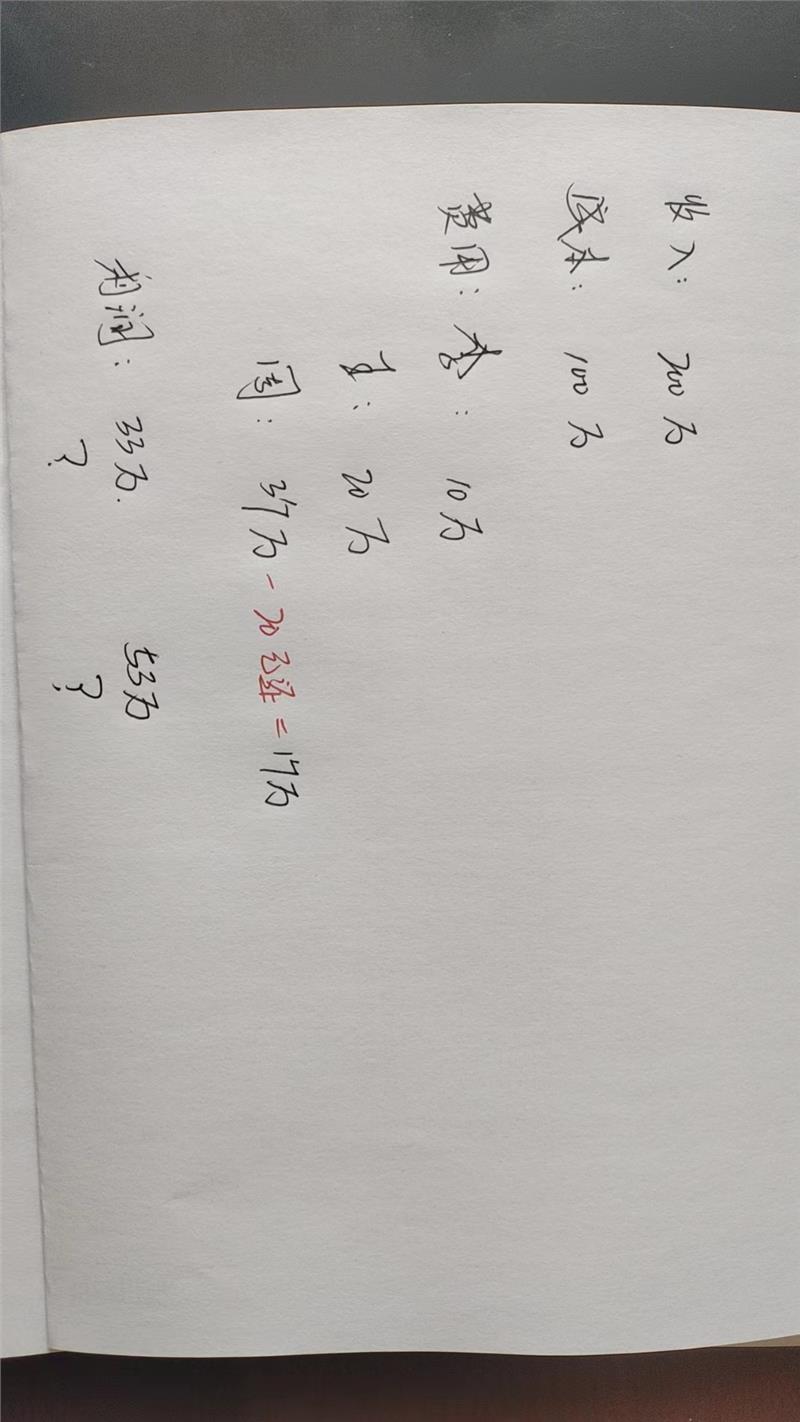 收入: 200万
成本: 100万
费用: 李: 10万
王: 20万
周: 37万 - 20 = 17万
利润: 33万. 53万
? ?